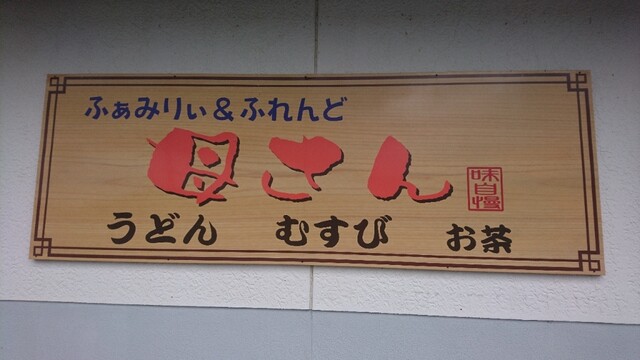 ふぁみりぃ&ふれんど
母さん
味自慢
うどん むすび お茶